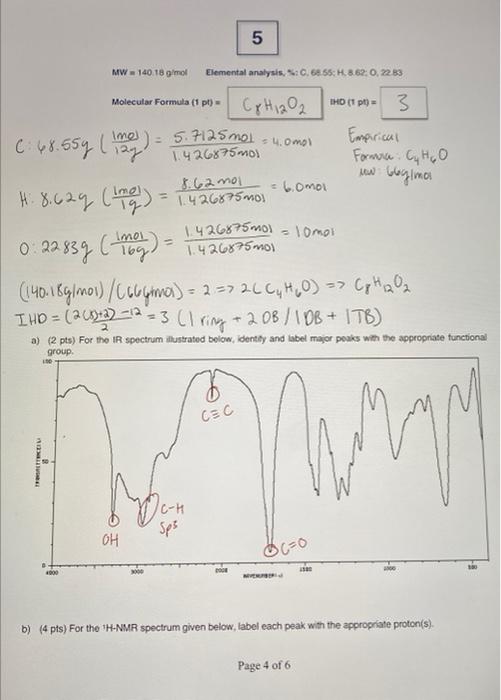 5
MW = 140.18 g/mol Elemental analysis, %: C, 68.55; H, 8.62; O, 22.83
Molecular Formula (1 pt) = C8H12O2 IHD (1 pt) = 3
C: 68.55g (1mol/12g) = 5.7125mol/1.426875mol = 4.0mol
Empirical
Formula: C4H6O
MW: 66g/mol
H: 8.62g (1mol/1g) = 8.62mol/1.426875mol = 6.0mol
O: 22.83g (1mol/16g) = 1.426875mol/1.426875mol = 1.0mol
(140.18g/mol)/(66g/mol) = 2 => 2(C4H6O) => C8H12O2
IHD = (2(8)+2)-12/2 = 3 (1 ring + 2DB / 1DB + 1TB)
a) (2 pts) For the IR spectrum illustrated below, identify and label major peaks with the appropriate functional
group.
100
C≡C
50
C-H
Sp3
OH
C=O
0
4000 3000 2000 1500 1000 500
b) (4 pts) For the ¹H-NMR spectrum given below, label each peak with the appropriate proton(s).
Page 4 of 6